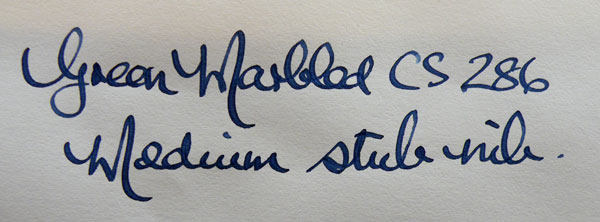 Green Marbled CS 286
Medium stub nib.